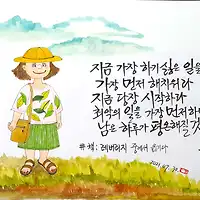 지금 가장 하기 싫은 일을
가장 먼저 해치워라
지금 당장 시작하라
최악의 일을 가장 먼저하면
남은 하루가 평온해질 것
#책: 레버리지 중에서 옮기다